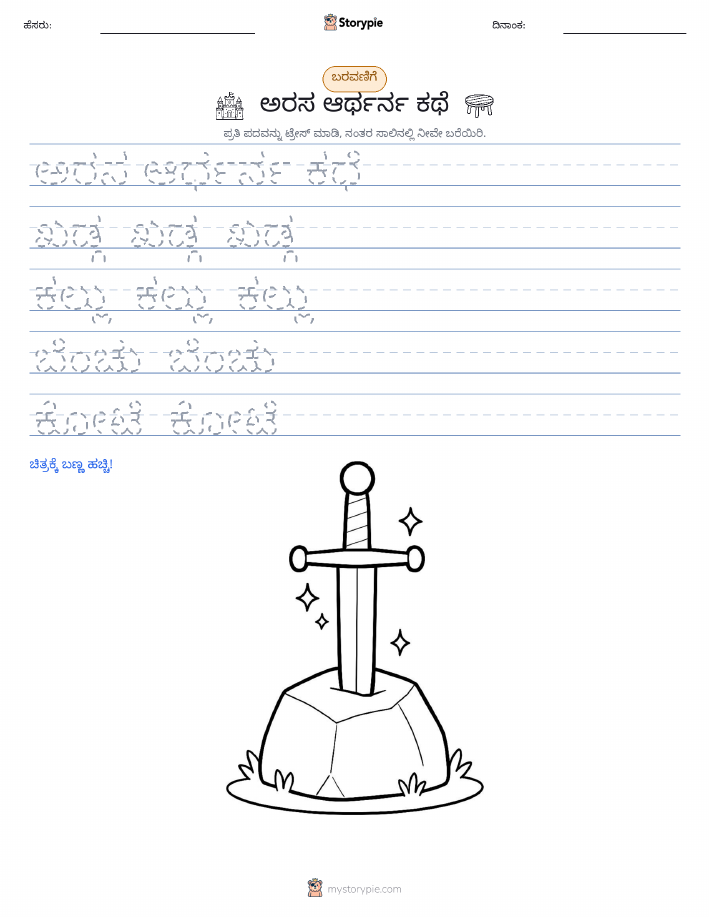 ಹೆಸರು: Storypie ದಿನಾಂಕ:
ಬರವಣಿಗೆ
ಅರಸ ಆರ್ಥರ್ನ ಕಥೆ
ಪ್ರತಿ ಪದವನ್ನು ಟ್ರೇಸ್ ಮಾಡಿ, ನಂತರ ಸಾಲಿನಲ್ಲಿ ನೀವೇ ಬರೆಯಿರಿ.
ಅರಸ ಆರ್ಥರ್ನ ಕಥೆ
ಖಡ್ಗ ಖಡ್ಗ ಖಡ್ಗ
ಕಲ್ಲು ಕಲ್ಲು ಕಲ್ಲು
ಬೆಂಚು ಬೆಂಚು
ಕೋಟೆ ಕೋಟೆ
ಚಿತ್ರಕ್ಕೆ ಬಣ್ಣ ಹಚ್ಚಿ!
mystorypie.com